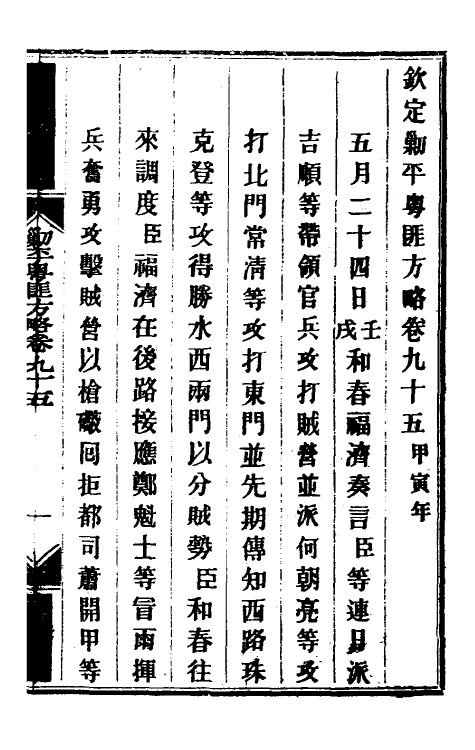 欽定勦平粵匪方略卷九十五甲寅年
五月二十四日壬戌和春福濟奏言臣等連日派
吉順等帶領官兵攻打賊營並派何朝亮等攻
打北門常清等攻打東門並先期傳知西路珠
克登等攻得勝水西兩門以分賊勢臣和春往
來調度臣福濟在後路接應鄭魁士等冒雨揮
兵奮勇攻擊賊營以槍礮囘拒都司蕭開甲等
勦平粵匪方略卷九十五
一